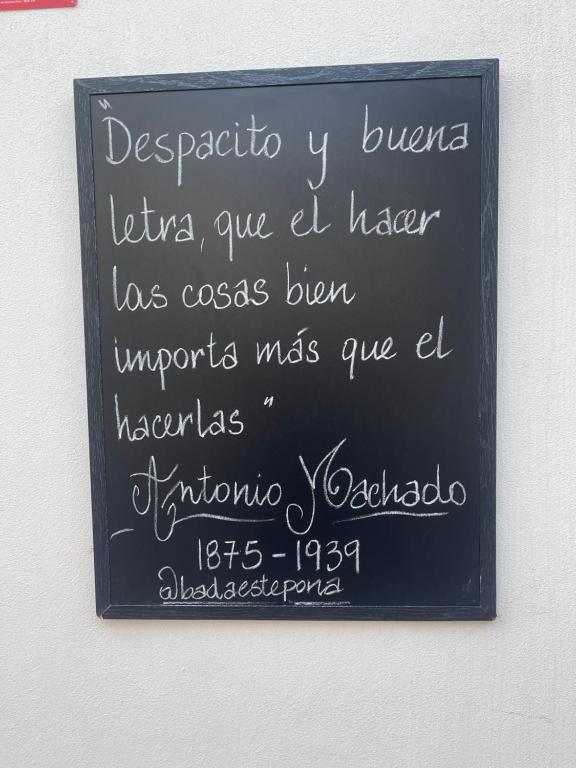 "Despacito y buena
letra, que el hacer
las cosas bien
importa más que el
hacerlas"
- Antonio Machado
1875-1939
@badaestepona